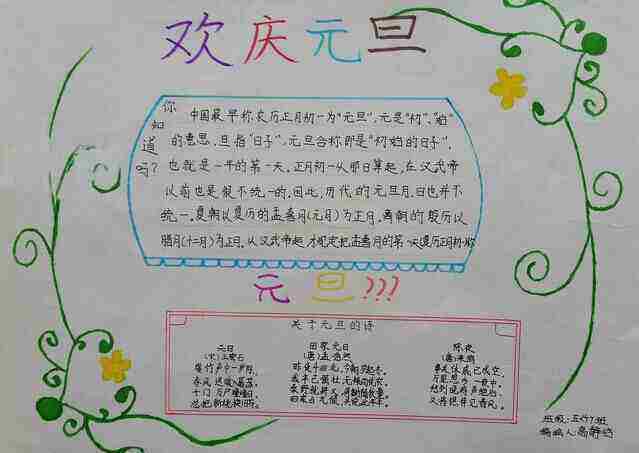 欢庆元旦
你知道吗?
中国最早称农历正月初一为"元旦",元是"初","始"
的意思,旦指"日子",元旦合称即是"初始的日子",
也就是一年的第一天。正月初一从那日算起,在汉武帝
以前也是很不统一的,因此,历代的元旦月、日也并不
统一。夏朝以夏历的孟喜月(元月)为正月,商朝的殷历以
腊月(十二月)为正月,从汉武帝起,才规定把孟喜月的第一天夏历正月初一
元旦???
关于元旦的诗
元日
(宋)王安石
爆竹声中一岁除,
春风送暖
千门万户曈曈日,
总把新桃换旧符。
田家元日
(唐)孟浩然
昨夜斗回北,今朝岁起东。
我年已强仕,无禄尚忧农。
桑野就耕父,荷锄随牧童。
田家占气候,共说此年丰。
除夜
(唐)来鹄
事关休戚已成空,
万里思一夜中。
愁到晓鸡声绝后,
又将憔悴见春风。
班级:五(7)班
编辑人:高静